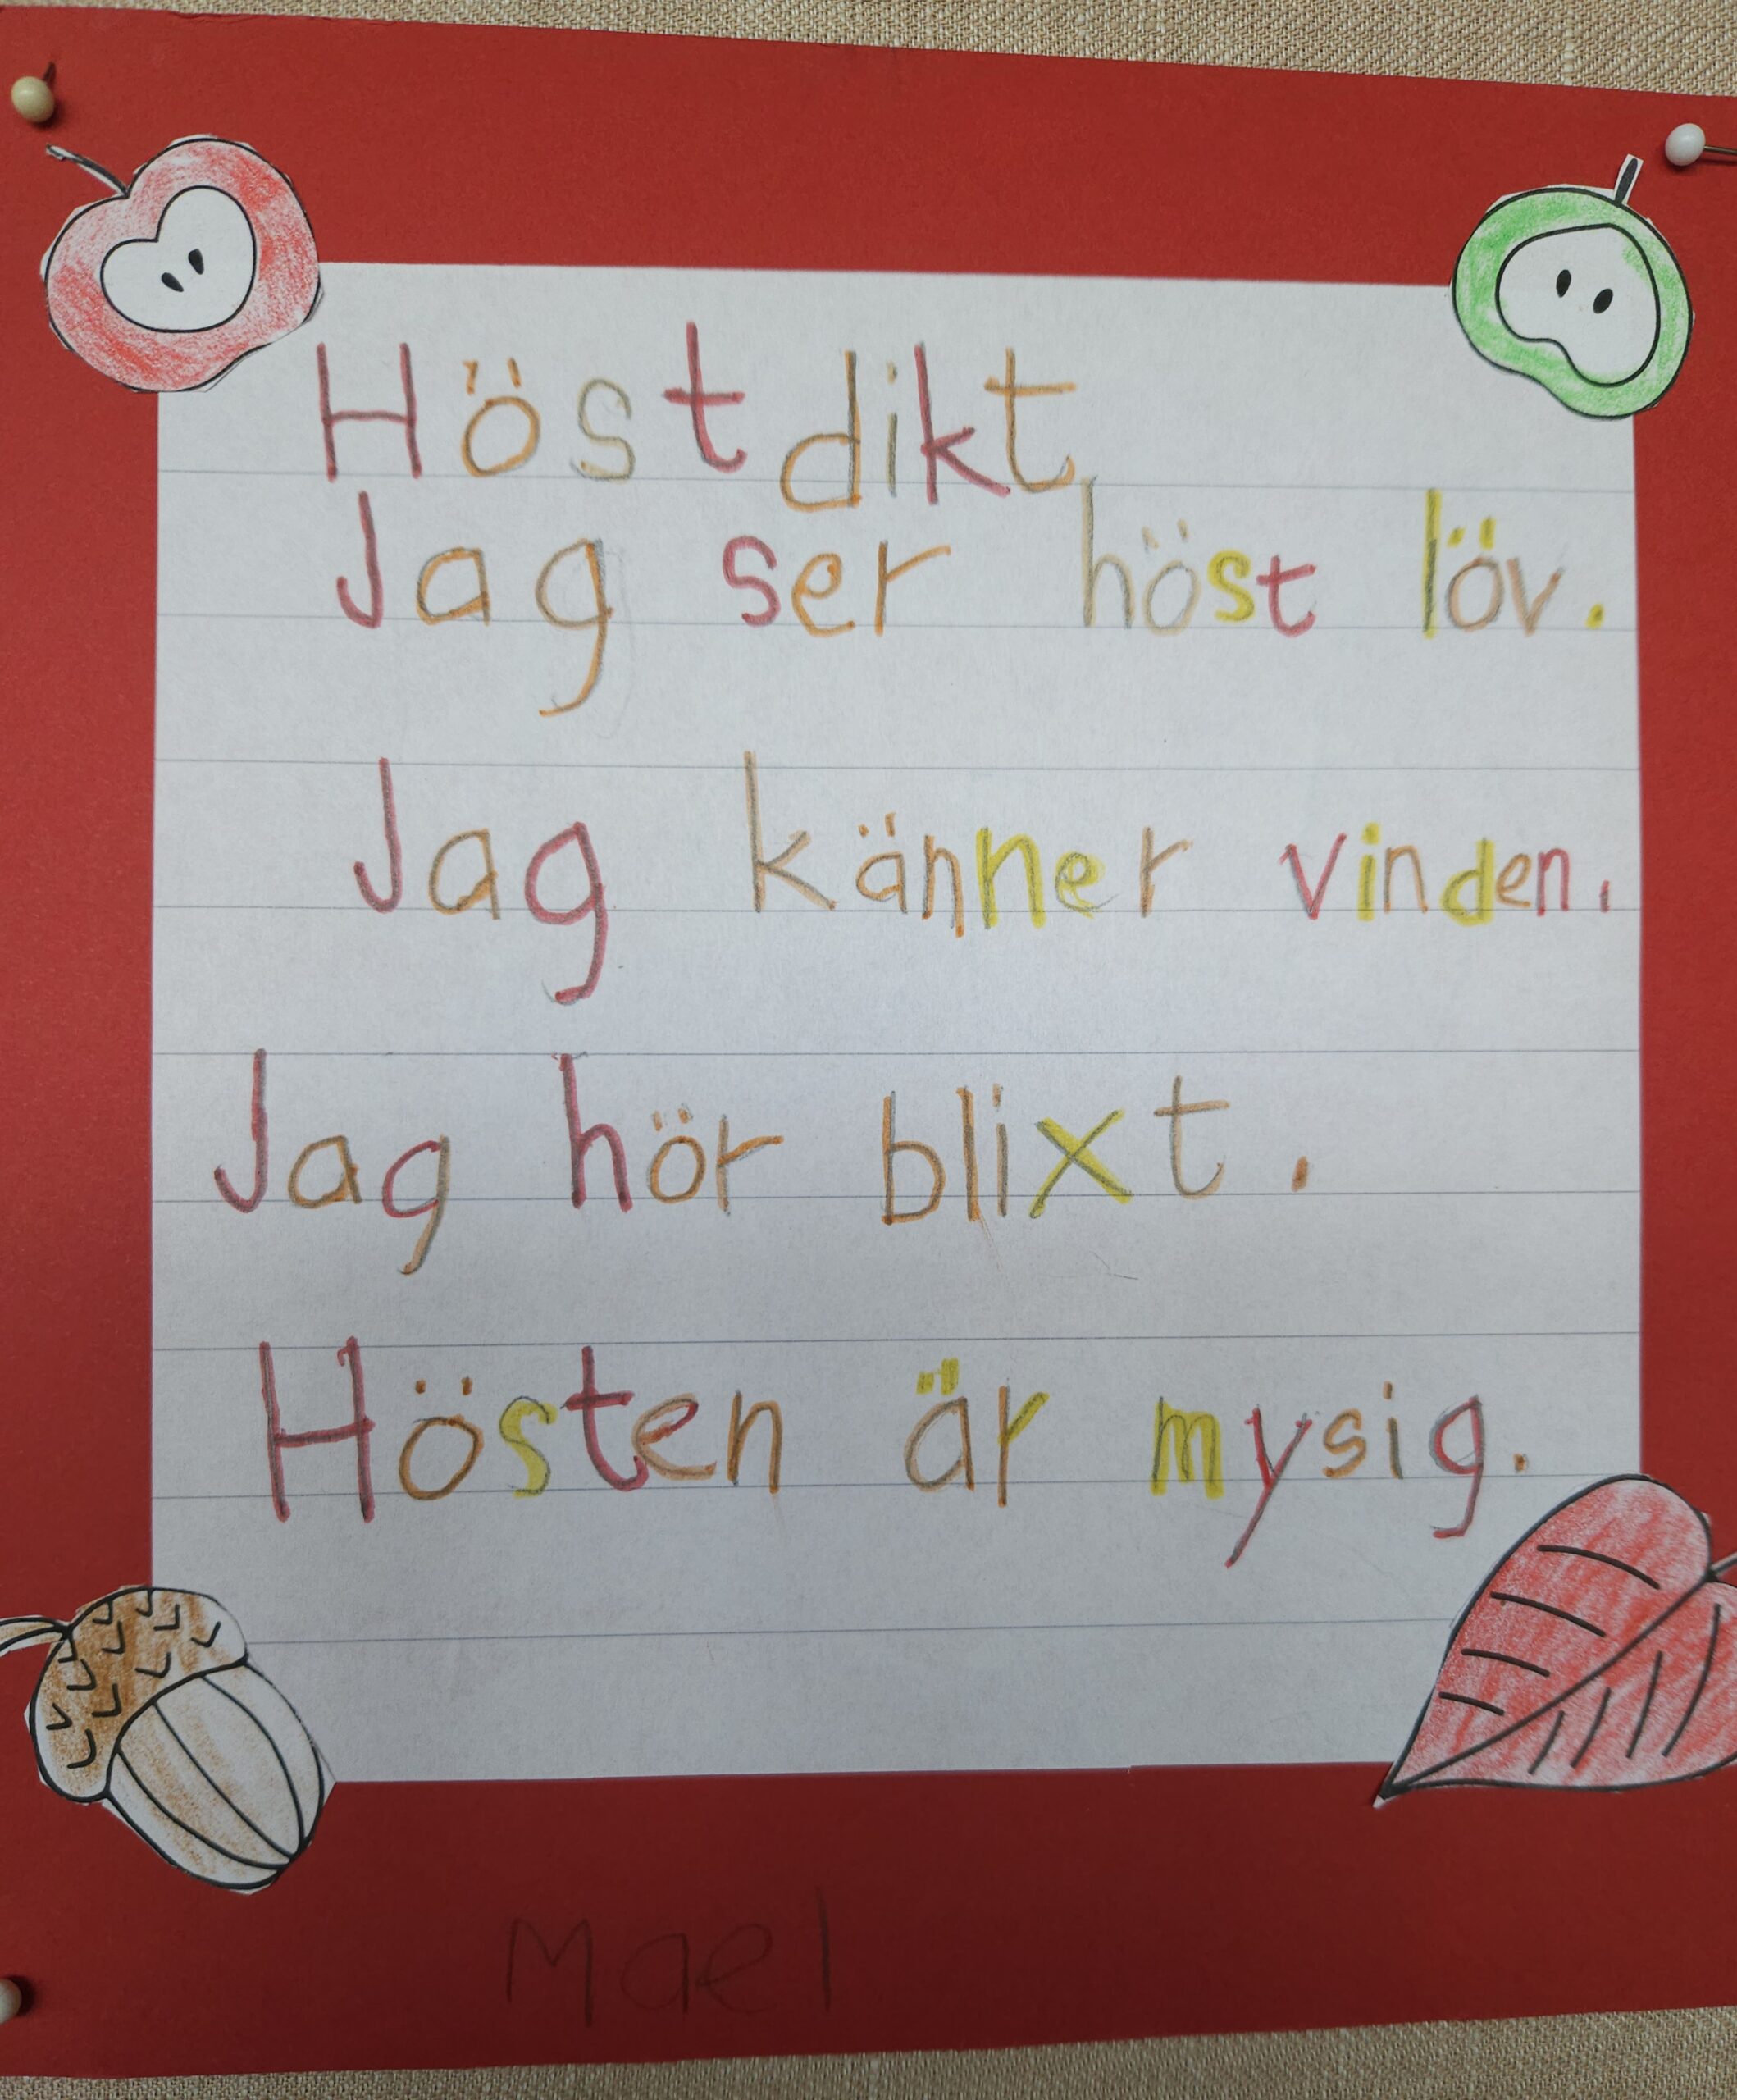 Höstdikt
Jag ser höst löv.
Jag känner vinden.
Jag hör blixt.
Hösten är mysig.
Mael